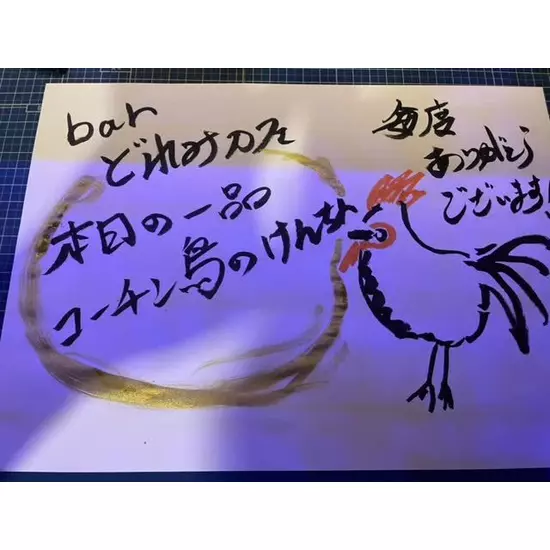 bar
どれみカフェ
本日の一品
コーチン鳥のけんちん
毎度
ありがとう
ございます!